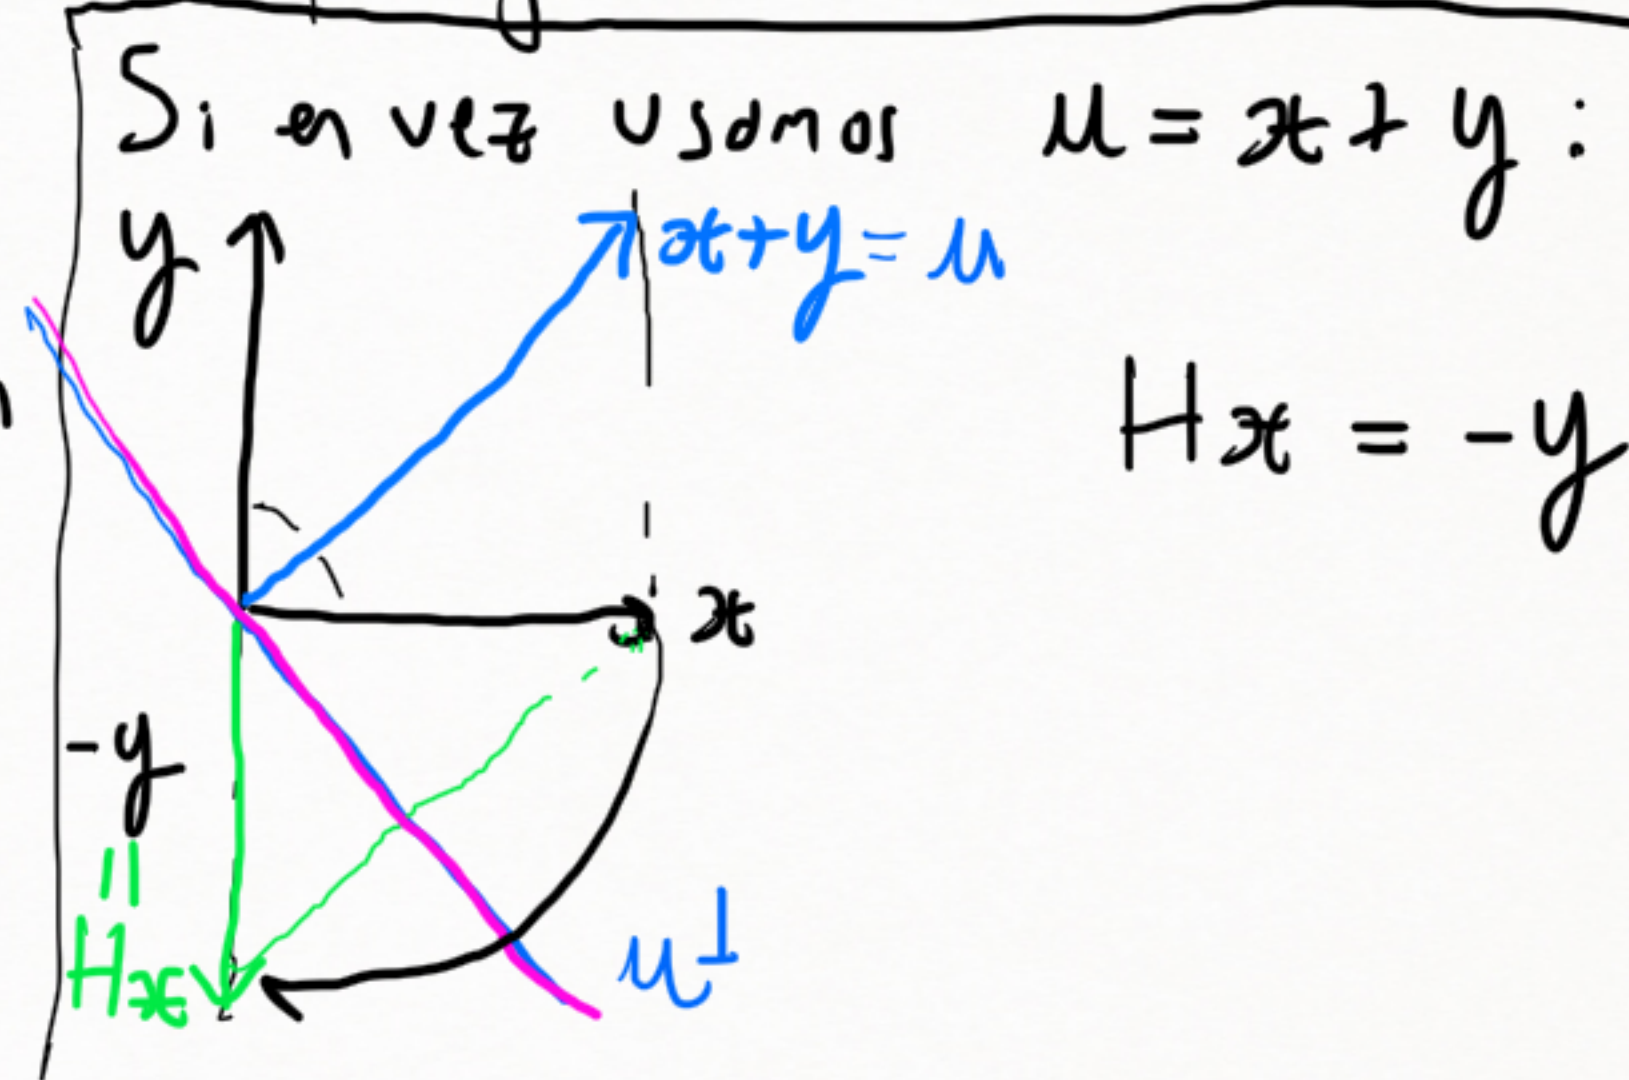 Si en vez usamos u = x + y :
y
x+y = u
Hx = -y
x
-y
=
Hx
u⊥